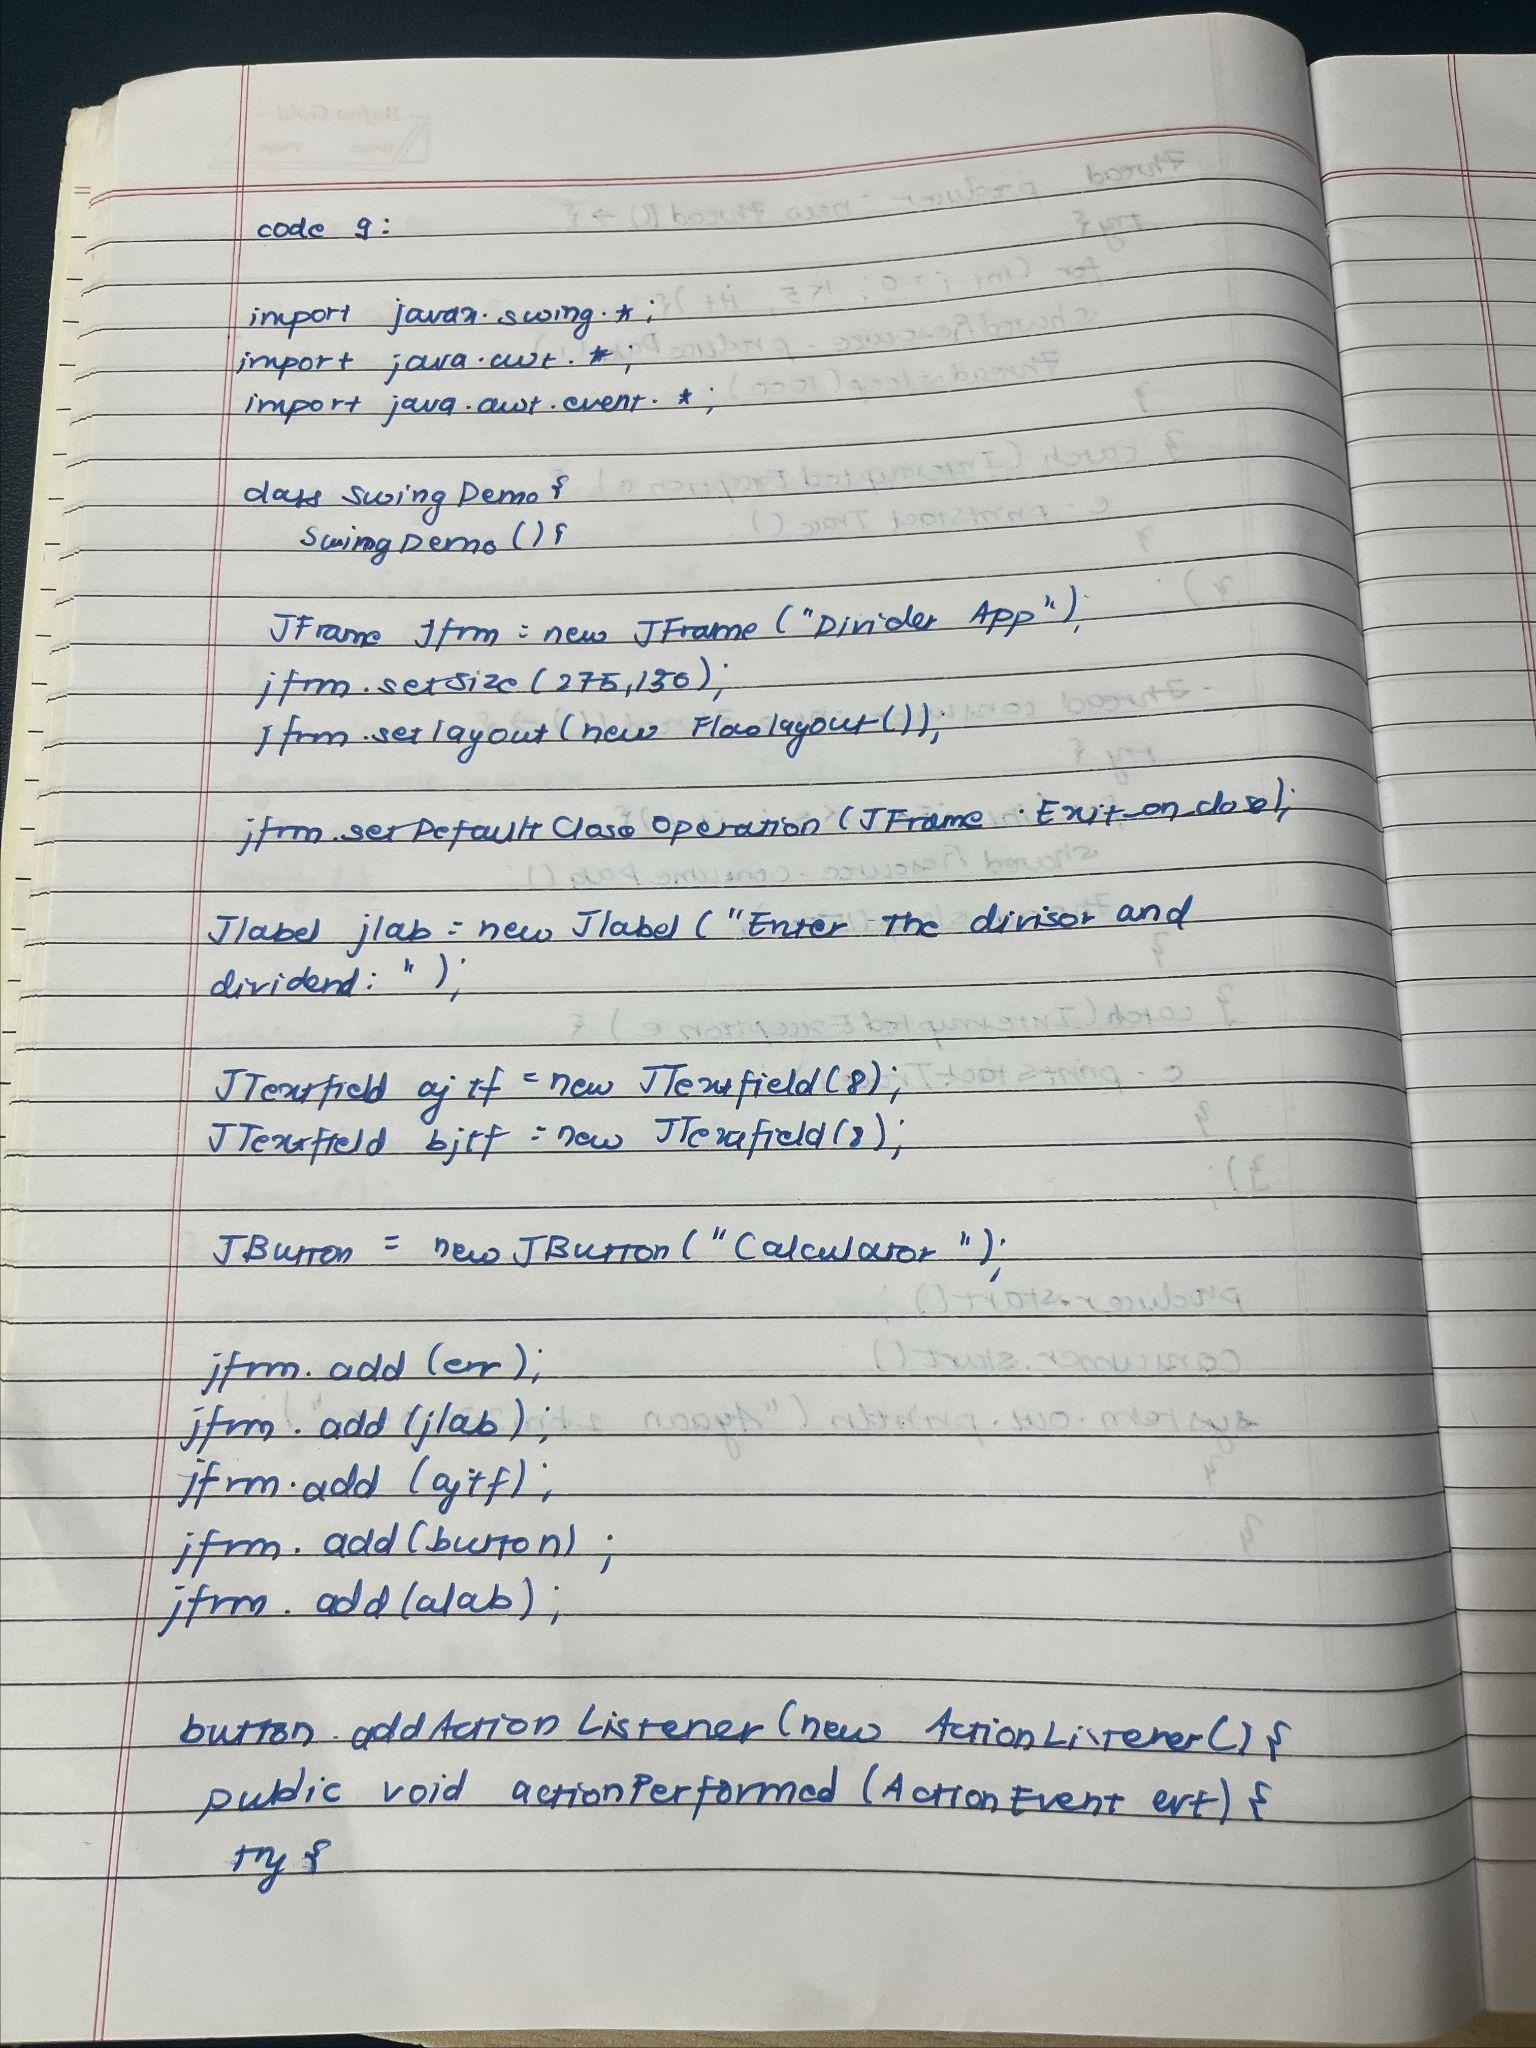 code 9:
import javax.swing.*;
import java.awt.*;
import java.awt.event.*;
class SwingDemo{
SwingDemo(){
JFrame Jfrm = new JFrame ("Divider App");
jfrm.setSize (275,150);
jfrm.setlayout (new Flowlayout());
jfrm.setDefaultCloseOperation (JFrame.Exit_on_close);
Jlabel jlab = new Jlabel ("Enter the divisor and
dividend: ");
JTextfield ajtf = new JTextfield(8);
JTextfield bjtf = new JTextfield(8);
JButton = new JButton ("Calculator");
jfrm.add (err);
jfrm.add (jlab);
jfrm.add (ajtf);
jfrm.add (button);
jfrm.add (alab);
button.addActionListener (new ActionListener() {
public void actionPerformed (ActionEvent evt) {
try {